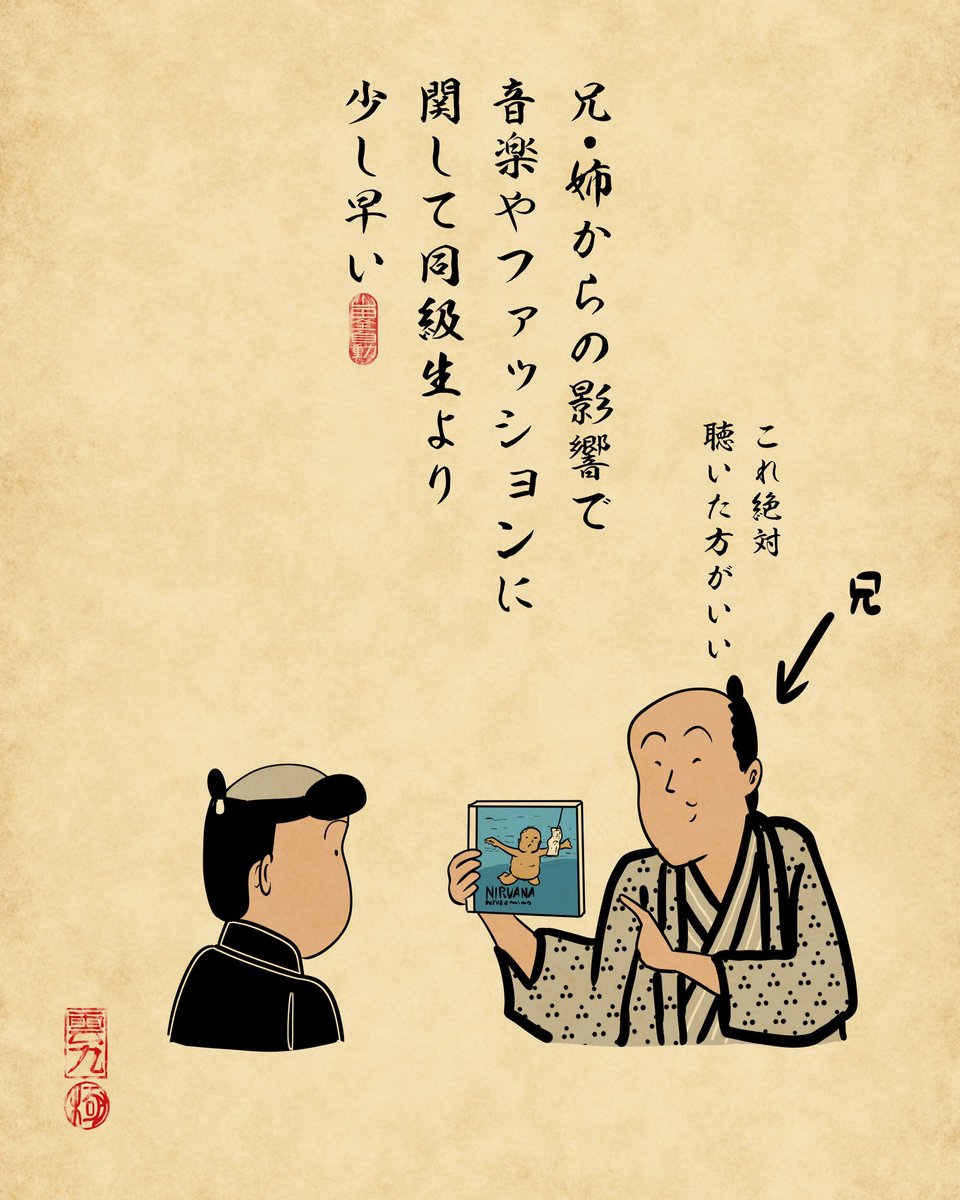 兄・姉からの影響で
音楽やファッションに
関して同級生より
少し早い
これ絶対
聴いた方がいい
兄
NIRVANA
雲九